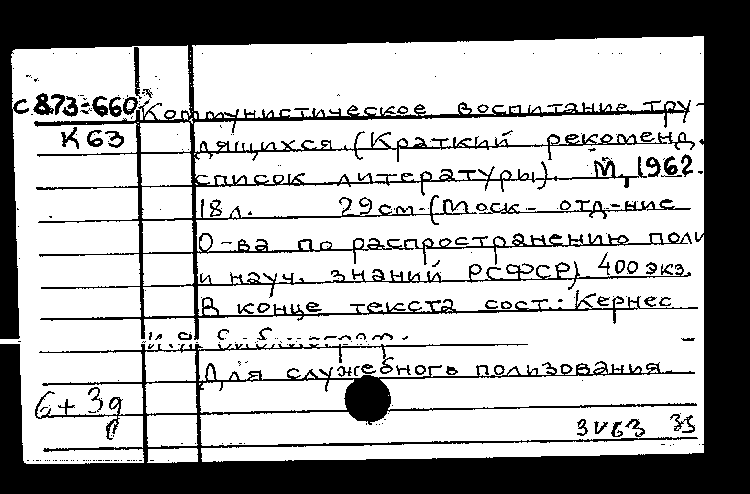 С873-660 Коммунистическое воспитание тру-
К63 дящихся. (Краткий рекоменд.
список литературы). М., 1962.
18 л. 29 см. (Моск- отд-ние
О-ва по распространению поли
и науч. знаний РСФСР) 400 экз.
В конце текста сост.: Кернес
И.Я. библиограф.
Для служебного пользования.
6+3д
3V63 35